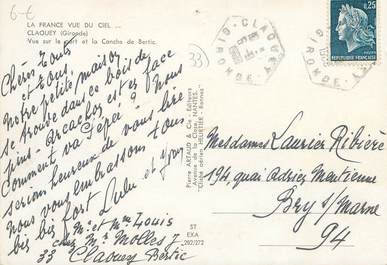 6-E
LA FRANCE VUE DU CIEL ...
CLAOUEY (Gironde)
Vue sur le Port et la Conche de Bertic.
33
CLAOUEY
GIRONDE
0,25
REPUBLIQUE FRANÇAISE
GIRONDE
Chère Lulu
et tous.
Notre petite maison
se trouve dans ce bois de
pins. Arcachon est en face
Comment va Pépée ? Nous
serions heureux de vous lire
Nous vous embrassons tous
bis bis fort Lulu et
Mr et Mme Louis
chez Mr Molles
33 Claouey Bertic
Pierre ARTAUD & Cie Editeurs
NANTES.
"Cliché aérien HEURTIER Rennes"
57
EXA
202/272
Mesdames Laurier Ribière
194 quai Adrien Mentienne
Bry s/Marne
94